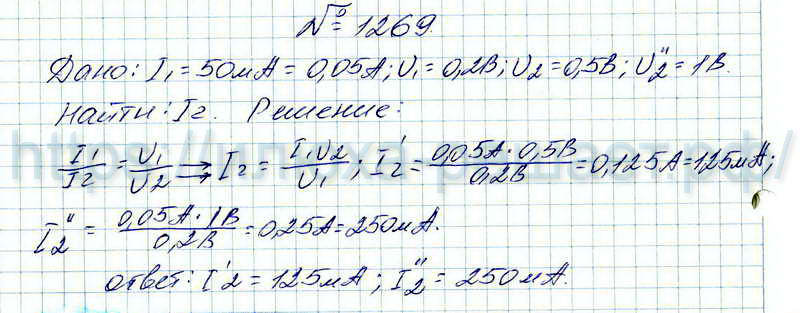 № 1269.
Дано: I₁ = 50мА = 0,05А; U₁ = 0,2В; U₂ = 0,5В; U₂" = 1В.
Найти: I₂. Решение:
I₁/I₂ = U₁/U₂ ⇉ I₂ = I₁U₂/U₁; I₂' = 0,05А·0,5В/0,2В = 0,125А = 125мА;
I₂" = 0,05А·1В/0,2В = 0,25А = 250мА.
ответ: I'₂ = 125мА; I₂" = 250мА.